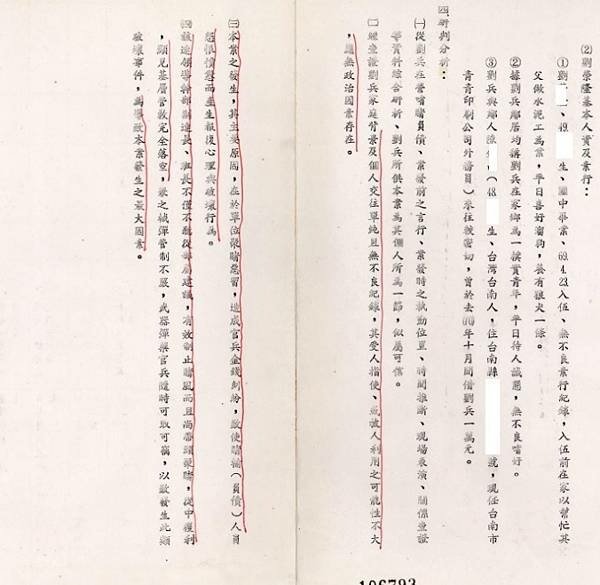 (2)劉榮隆基本人資及素行：
①劉 、 49. 生、國中畢業、69.4.23.入伍、無不良素行紀錄，入伍前在家以幫忙其
父做水泥工為業，平日喜好溜狗，養有狼犬一條。
②據劉兵鄰居均稱劉兵在家鄉為一樸實青年，平日待人誠懇，無不良嗜好。
③劉兵與鄰人陳 （48. 生、台灣台南人，住台南縣 號，現任台南市
青青印刷公司外務員）來往親密切，曾於去 年十月間借劉兵一萬元。
四研判分析：
㈠從劉兵在營嗜賭負債、案發前之言行、案發時之執勤位置、時間推斷、現場表演、關係查證
等資料綜合研析、劉兵所供本案為其個人所為一節，似屬可信。
㈡經查證劉兵家庭背景及個人交往單純且無不良紀錄，其受人指使、或被人利用之可能性不大
，應無政治因素存在。
㈢本案之發生，其主要原因，在於單位聚賭惡習，造成官兵金錢糾紛，致使賭輸（負債）人員
怨恨憤怒而產生報復心理與破壞行為。
㈣該連領導幹部副連長、班長不僅不聽從部屬建議，有效制止賭風而且尚帶頭聚賭，從中獲利
，顯見基層管教完全落空，兼之械彈管制不嚴，武器彈藥官兵隨時可取可竊，以致發生此類
破壞事件，為導致本案發生之最大因素。
106793